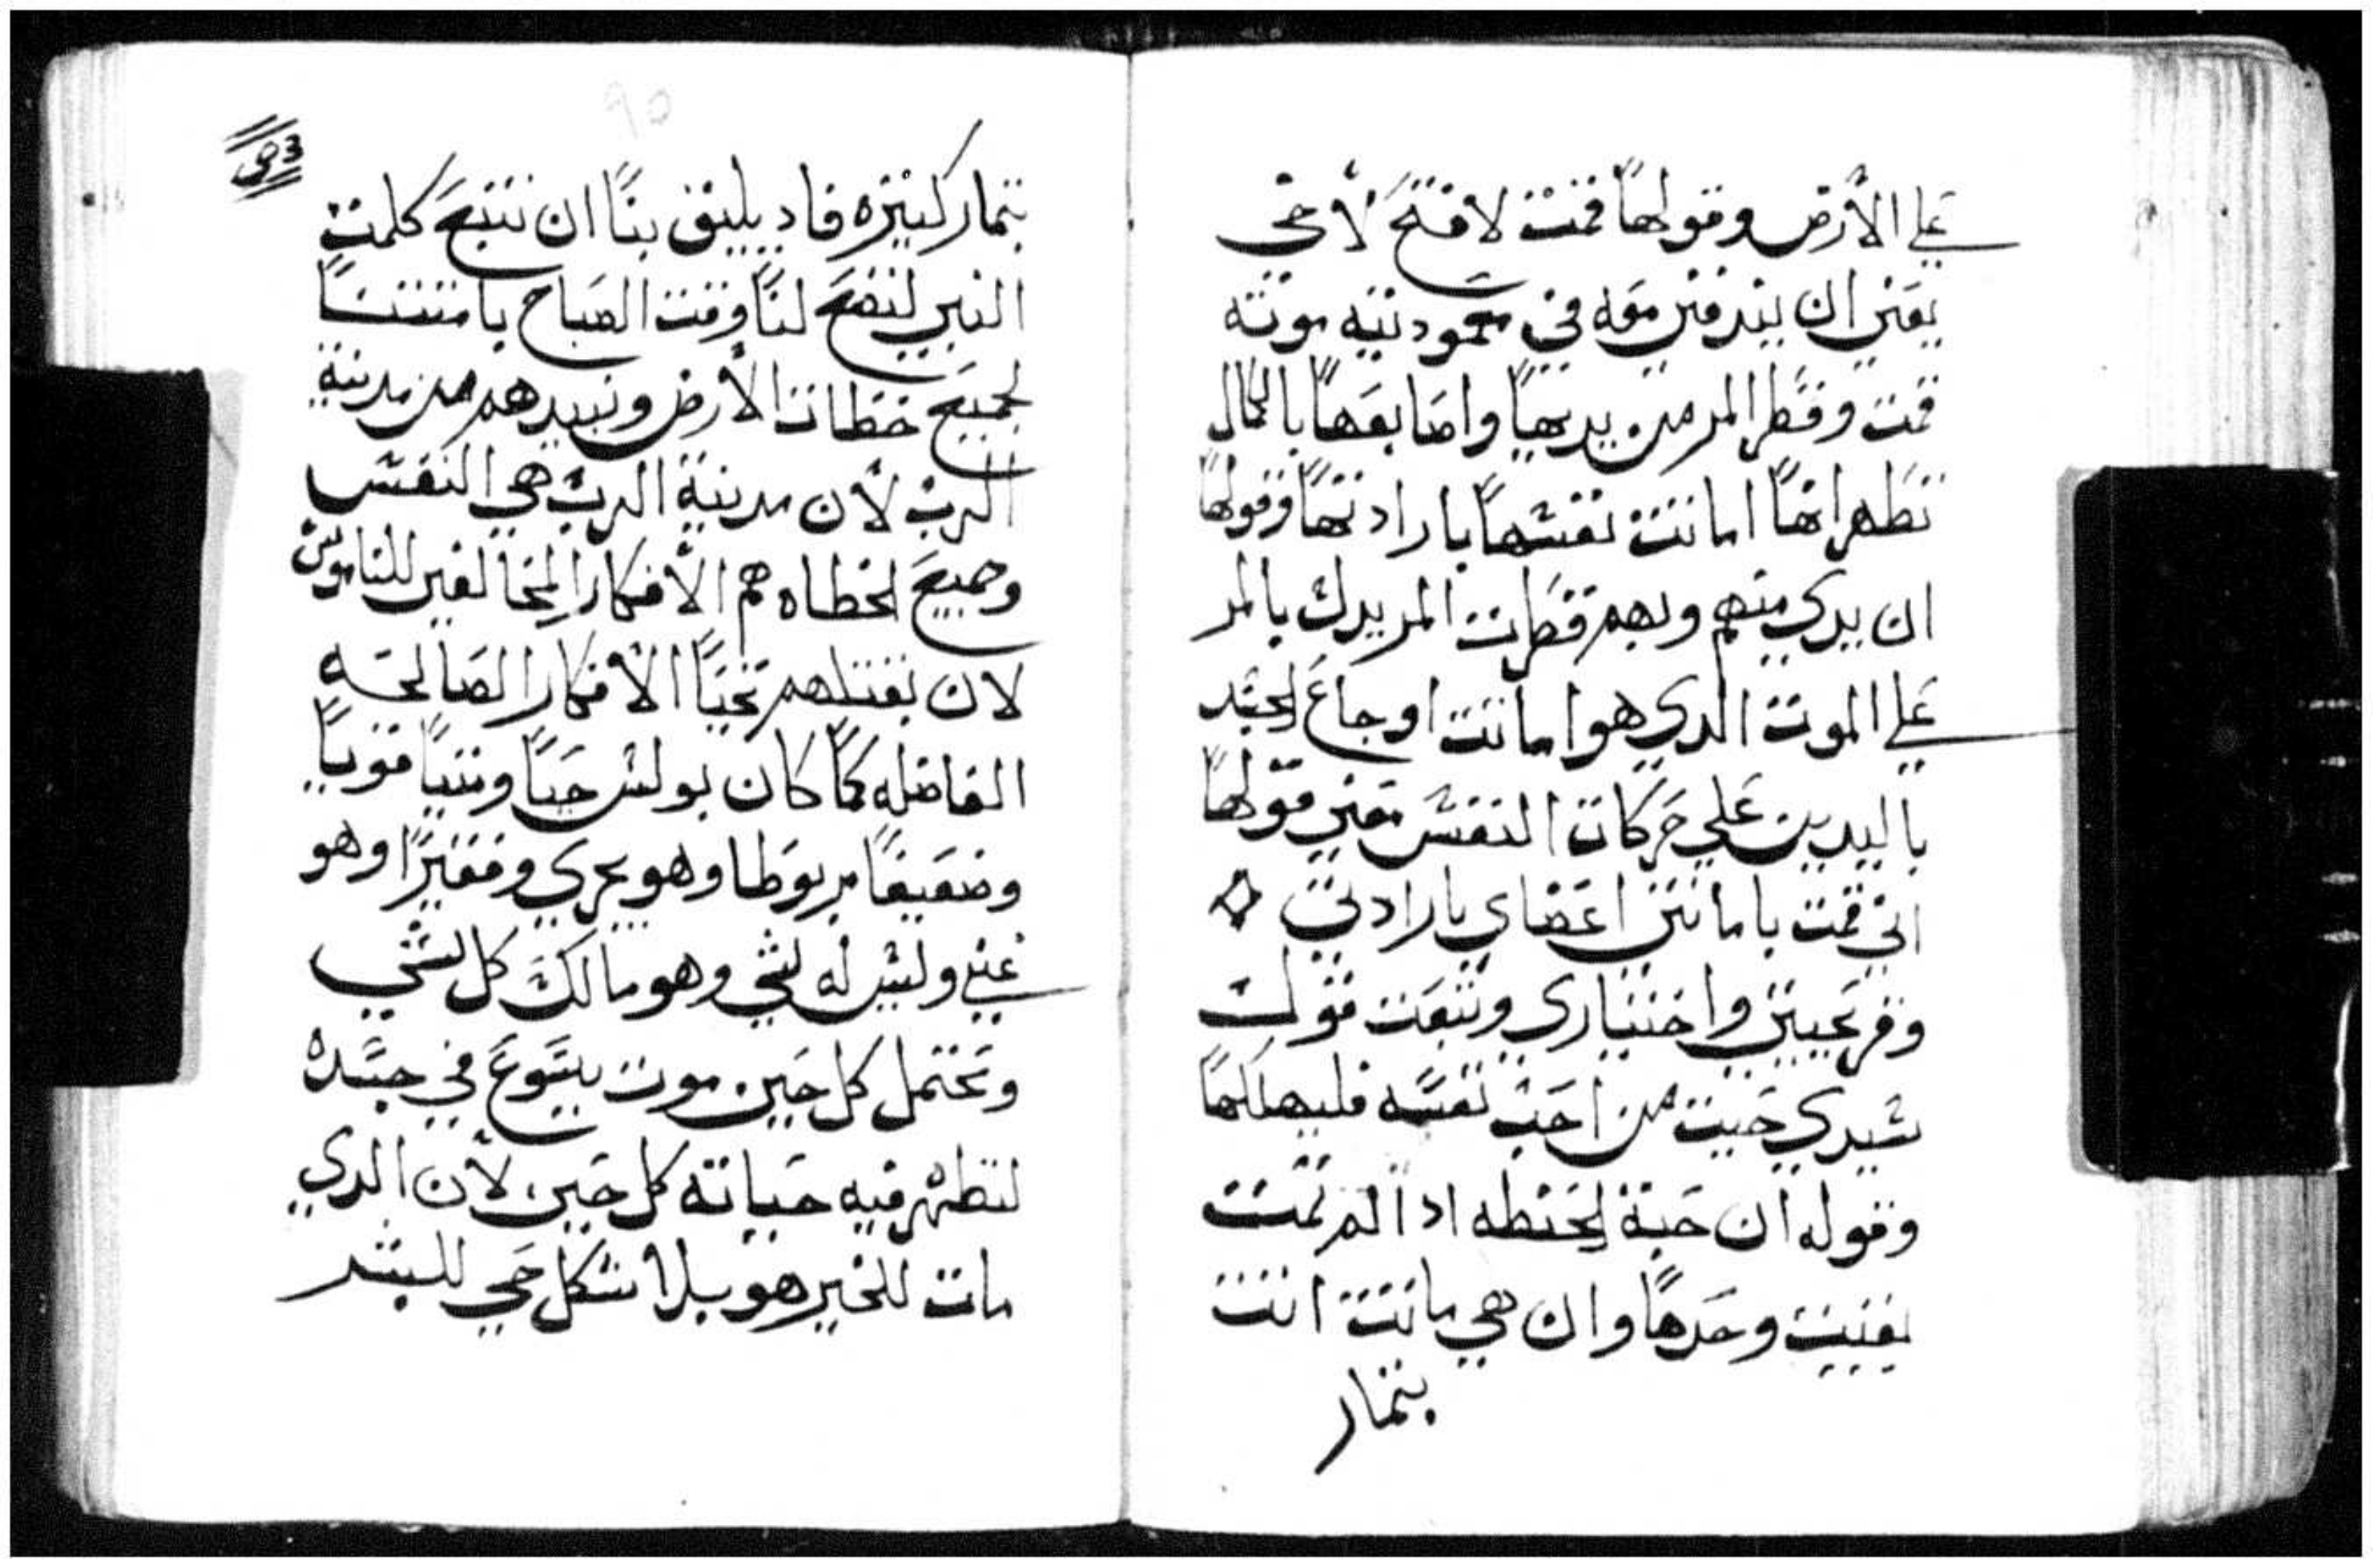 علي الأرض وقولها قمت لافتح لأخي
يعني ان يندفن معه في معموديته موته
قمت وقطر المر من يديها واصابعها بالكمال
تظهر انها اماتت نفسها بارادتها وقولها
ان يدي منهم وبهم قطرت المر يدل بالمر
علي الموت الدي هو اماتت اوجاع الجسد
باليدين علي حركات النفس معني قولها
اني قمت باماتتن اعضاي بارادتي
وفرعيين واختياري وتبعت قول
سيدي حيت من احب نفسه فليهلكها
وقوله ان حبة الحنطه ادا لم تمت
بقيت وحدها وان هي ماتت اتت
بتمار
بتمار كتيره فاد يليق بنا ان نتبع كلمت
النبي لنضح لنا وقت الصباح بامتتنا
لجميع خطات الأرض ونبيدهم من مدينة
الرب لأن مدينة الرب هي النفس
وجميع الخطاه هم الأفكار المخالفين للناموس
لان بقتلهم تحيا الأفكار الصالحه
الفاضله كما كان بولس حيا وميتا قويا
وضعيفا مربوطا وهو يجري وفقيرا وهو
غني وليس له شي وهو مالك كل شي
وتحتمل كل حين موت يسوع في جسده
لتظهر فيه حياته كل حين لأن الدي
مات للخير هو بلا شكل حي للبشر